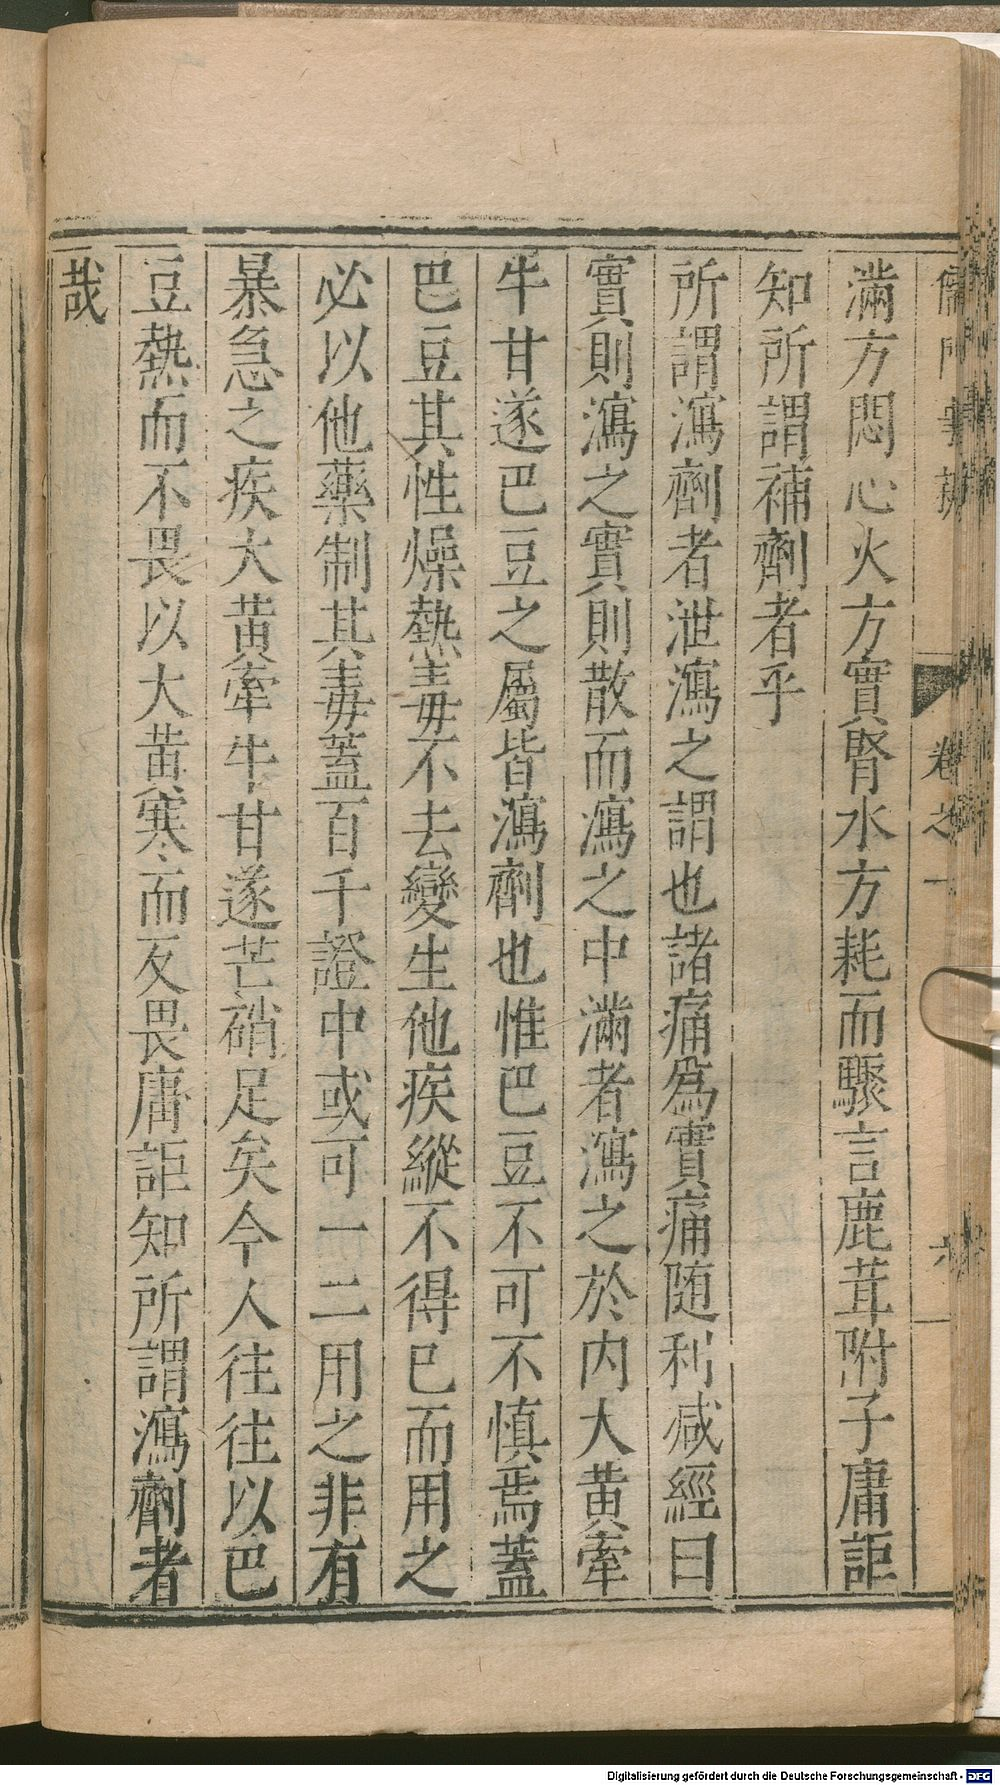 儒門事親
卷之一
六
滿方悶心火方實腎水方耗而驟言鹿茸附子庸詎
知所謂補劑者乎
所謂瀉劑者泄瀉之謂也諸痛爲實痛随利减經曰
實則瀉之實則散而瀉之中滿者瀉之於内大黄牽
牛甘遂巴豆之屬皆瀉劑也惟巴豆不可不慎焉蓋
巴豆其性燥熱毒不去變生他疾縱不得已而用之
必以他藥制其毒蓋百千證中或可一二用之非有
暴急之疾大黄牽牛甘遂芒硝足矣今人往往以巴
豆熱而不畏以大黄寒而反畏庸詎知所謂瀉劑者
哉
Digitalisierung gefördert durch die Deutsche Forschungsgemeinschaft - DFG